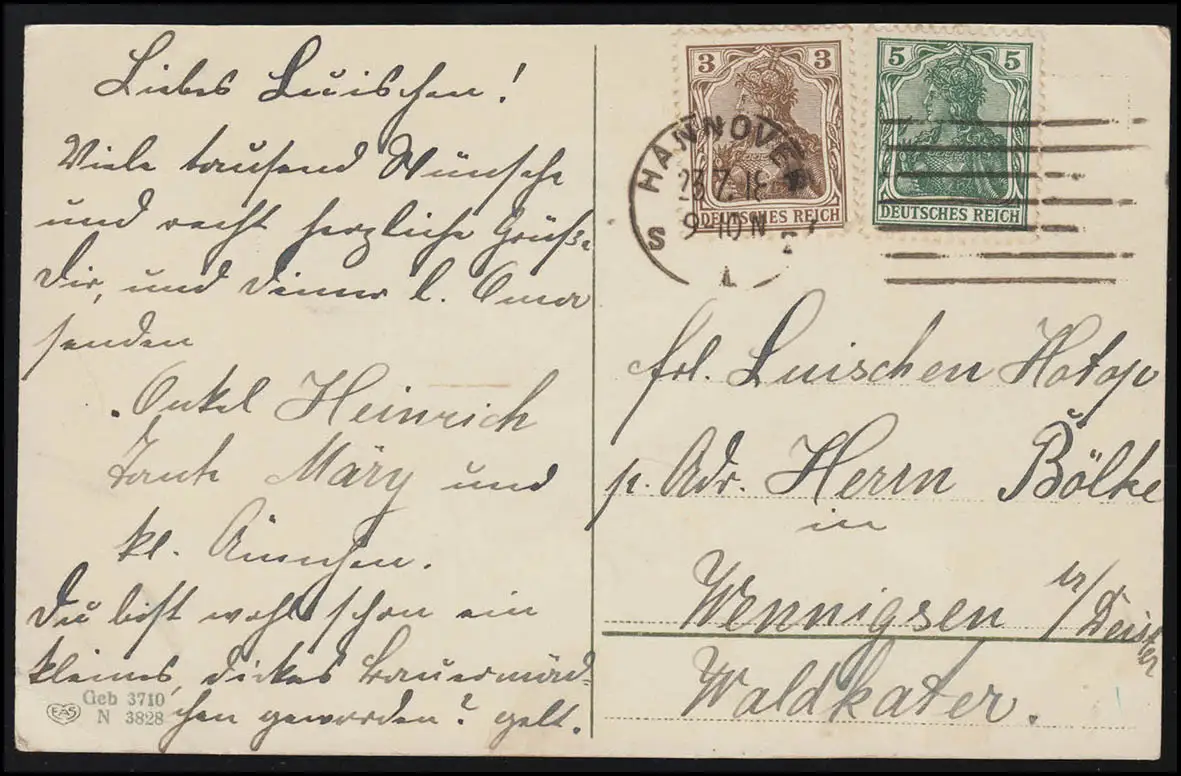 Liebes Luischen!
Viele tausend Wünsche
und recht herzliche Grüße
Dir, und Deiner l. Oma
senden
Onkel Heinrich
Tante Märy und
kl. Ännchen.
Du bist wohl schon ein
kleines, dickes Bauernmäd-
chen geworden? gelt.
Geb 3710
N 3828
EAS
3 3
DEUTSCHES REICH
5 5
DEUTSCHES REICH
HANNOVER
23.7.18
9-10N
S
1
frl. Luischen Hotop
p. Adr. Herrn Bölke
in
Wennigsen a/Deister
Waldkater.